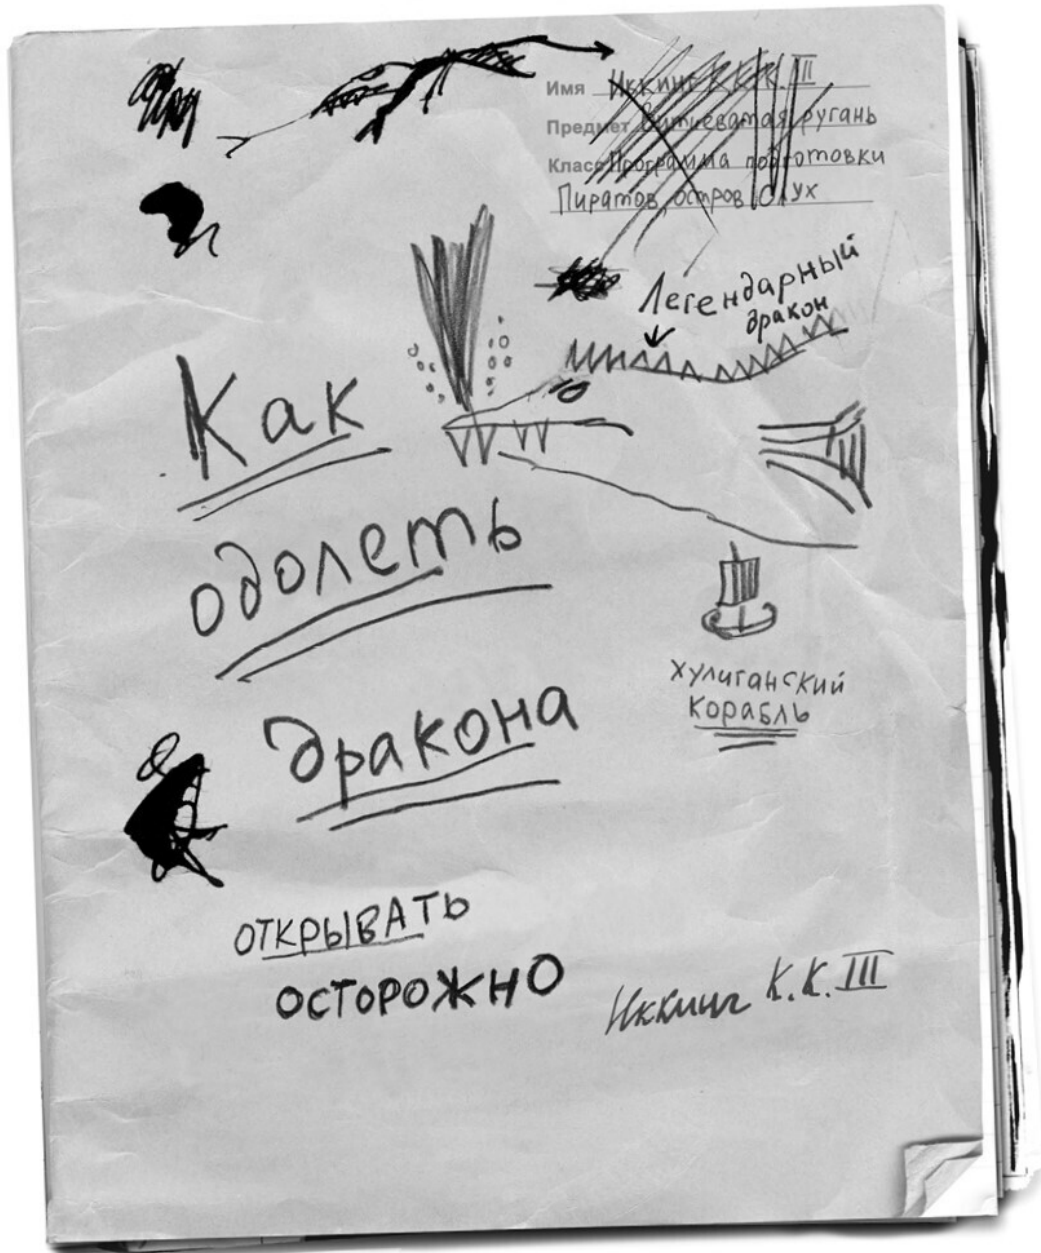 Имя Иккинг К.К. III
Предмет Витиеватая ругань
Класс Программа подготовки
Пиратов, остров Олух
Легендарный
дракон
Как
одолеть
дракона
хулиганский
корабль
ОТКРЫВАТЬ
ОСТОРОЖНО
Иккинг К.К. III